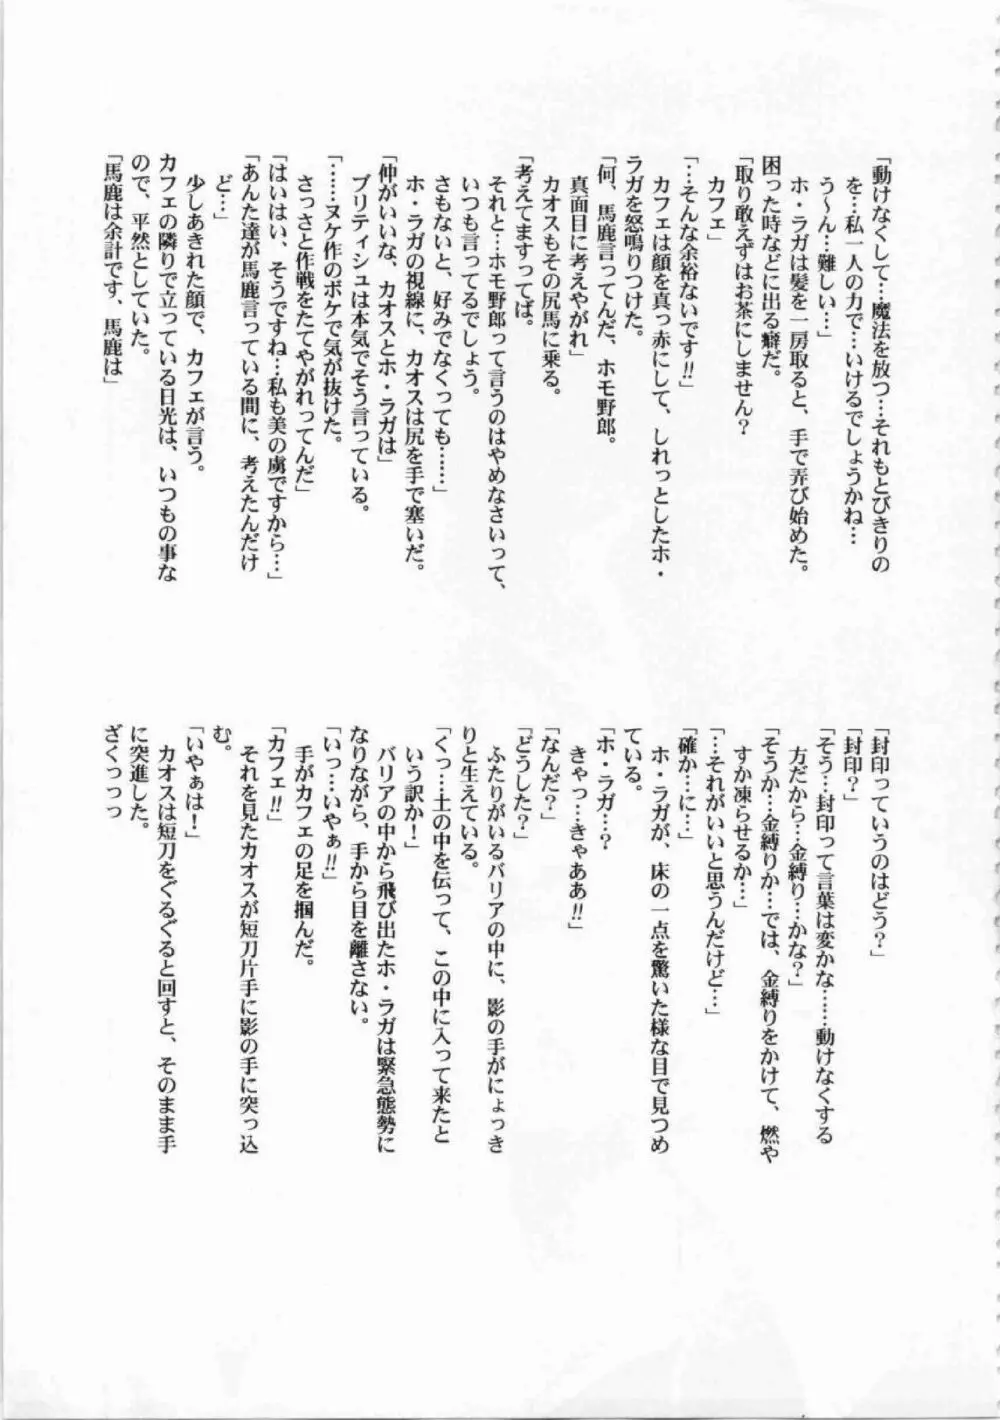 「動けなくして…魔法を放つ…それもとびきりの
を…私一人の力で…いけるでしょうかね…
う〜ん…難しい…」
ホ・ラガは髪を一房取ると、手で弄び始めた。
困った時などに出る癖だ。
「取り敢えずはお茶にしません？
カフェ」
「…そんな余裕ないです!!」
カフェは顔を真っ赤にして、しれっとしたホ・
ラガを怒鳴りつけた。
「何、馬鹿言ってんだ、ホモ野郎。
真面目に考えやがれ」
カオスもその尻馬に乗る。
「考えてますってば。
それと…ホモ野郎って言うのはやめなさいって、
いつも言ってるでしょう。
さもないと、好みでなくっても……」
ホ・ラガの視線に、カオスは尻を手で塞いだ。
「仲がいいな、カオスとホ・ラガは」
ブリティシュは本気でそう言っている。
「……ヌケ作のボケで気が抜けた。
さっさと作戦をたてやがれってんだ」
「はいはい、そうですね…私も美の虜ですから…」
「あんた達が馬鹿言っている間に、考えたんだけ
ど…」
少しあきれた顔で、カフェが言う。
カフェの隣りで立っている日光は、いつもの事な
ので、平然としていた。
「馬鹿は余計です、馬鹿は」
「封印っていうのはどう？」
「封印？」
「そう…封印って言葉は変かな……動けなくする
方だから…金縛り…かな？」
「そうか…金縛りか…では、金縛りをかけて、燃や
すか凍らせるか…」
「…それがいいと思うんだけど…」
「確か…に…」
ホ・ラガが、床の一点を驚いた様な目で見つめ
ている。
「ホ・ラガ…？
きゃっ…きゃああ!!」
「なんだ？」
「どうした？」
ふたりがいるバリアの中に、影の手がにょっき
りと生えている。
「くっ…土の中を伝って、この中に入って来たと
いう訳か！」
バリアの中から飛び出たホ・ラガは緊急態勢に
なりながら、手から目を離さない。
「いっ…いやぁ!!」
手がカフェの足を掴んだ。
「カフェ!!」
それを見たカオスが短刀片手に影の手に突っ込
む。
「いやぁは！」
カオスは短刀をぐるぐると回すと、そのまま手
に突進した。
ざくっっっ